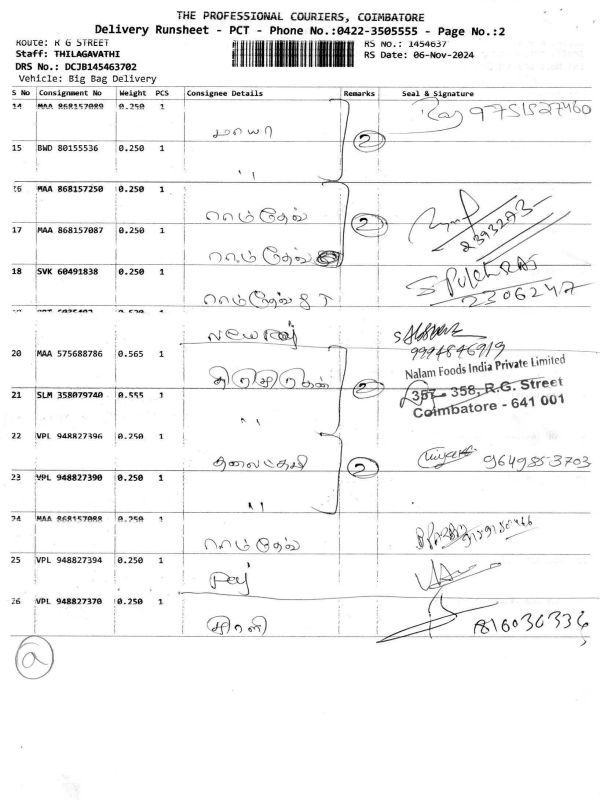 THE PROFESSIONAL COURIERS, COIMBATORE
Delivery Runsheet - PCT - Phone No.:0422-3505555 - Page No.:2
Route: R G STREET
RS No.: 1454637
Staff: THILAGAVATHI
RS Date: 06-Nov-2024
DRS No.: DCJB145463702
Vehicle: Big Bag Delivery
S No Consignment No Weight PCS Consignee Details Remarks Seal & Signature
14 MAA 868157089 0.250 1
Raj 9751527460
மாயா 2
15 BWD 80155536 0.250 1
"
16 MAA 868157250 0.250 1
ராம்தேவ் 2
17 MAA 868157087 0.250 1
ராம்தேவ்
18 SVK 60491838 0.250 1
ராம்தேவ் 8 T
2306247
New Raj
9994846919
20 MAA 575688786 0.565 1
Nalam Foods India Private Limited
2
357 - 358, R.G. Street
21 SLM 358079740 0.555 1
"
Coimbatore - 641 001
22 VPL 948827396 0.250 1
2 9649853703
23 VPL 948827390 0.250 1
"
24 MAA 868157088 0.250 1
ராம்தேவ்
25 VPL 948827394 0.250 1
Raj
26 VPL 948827370 0.250 1
a